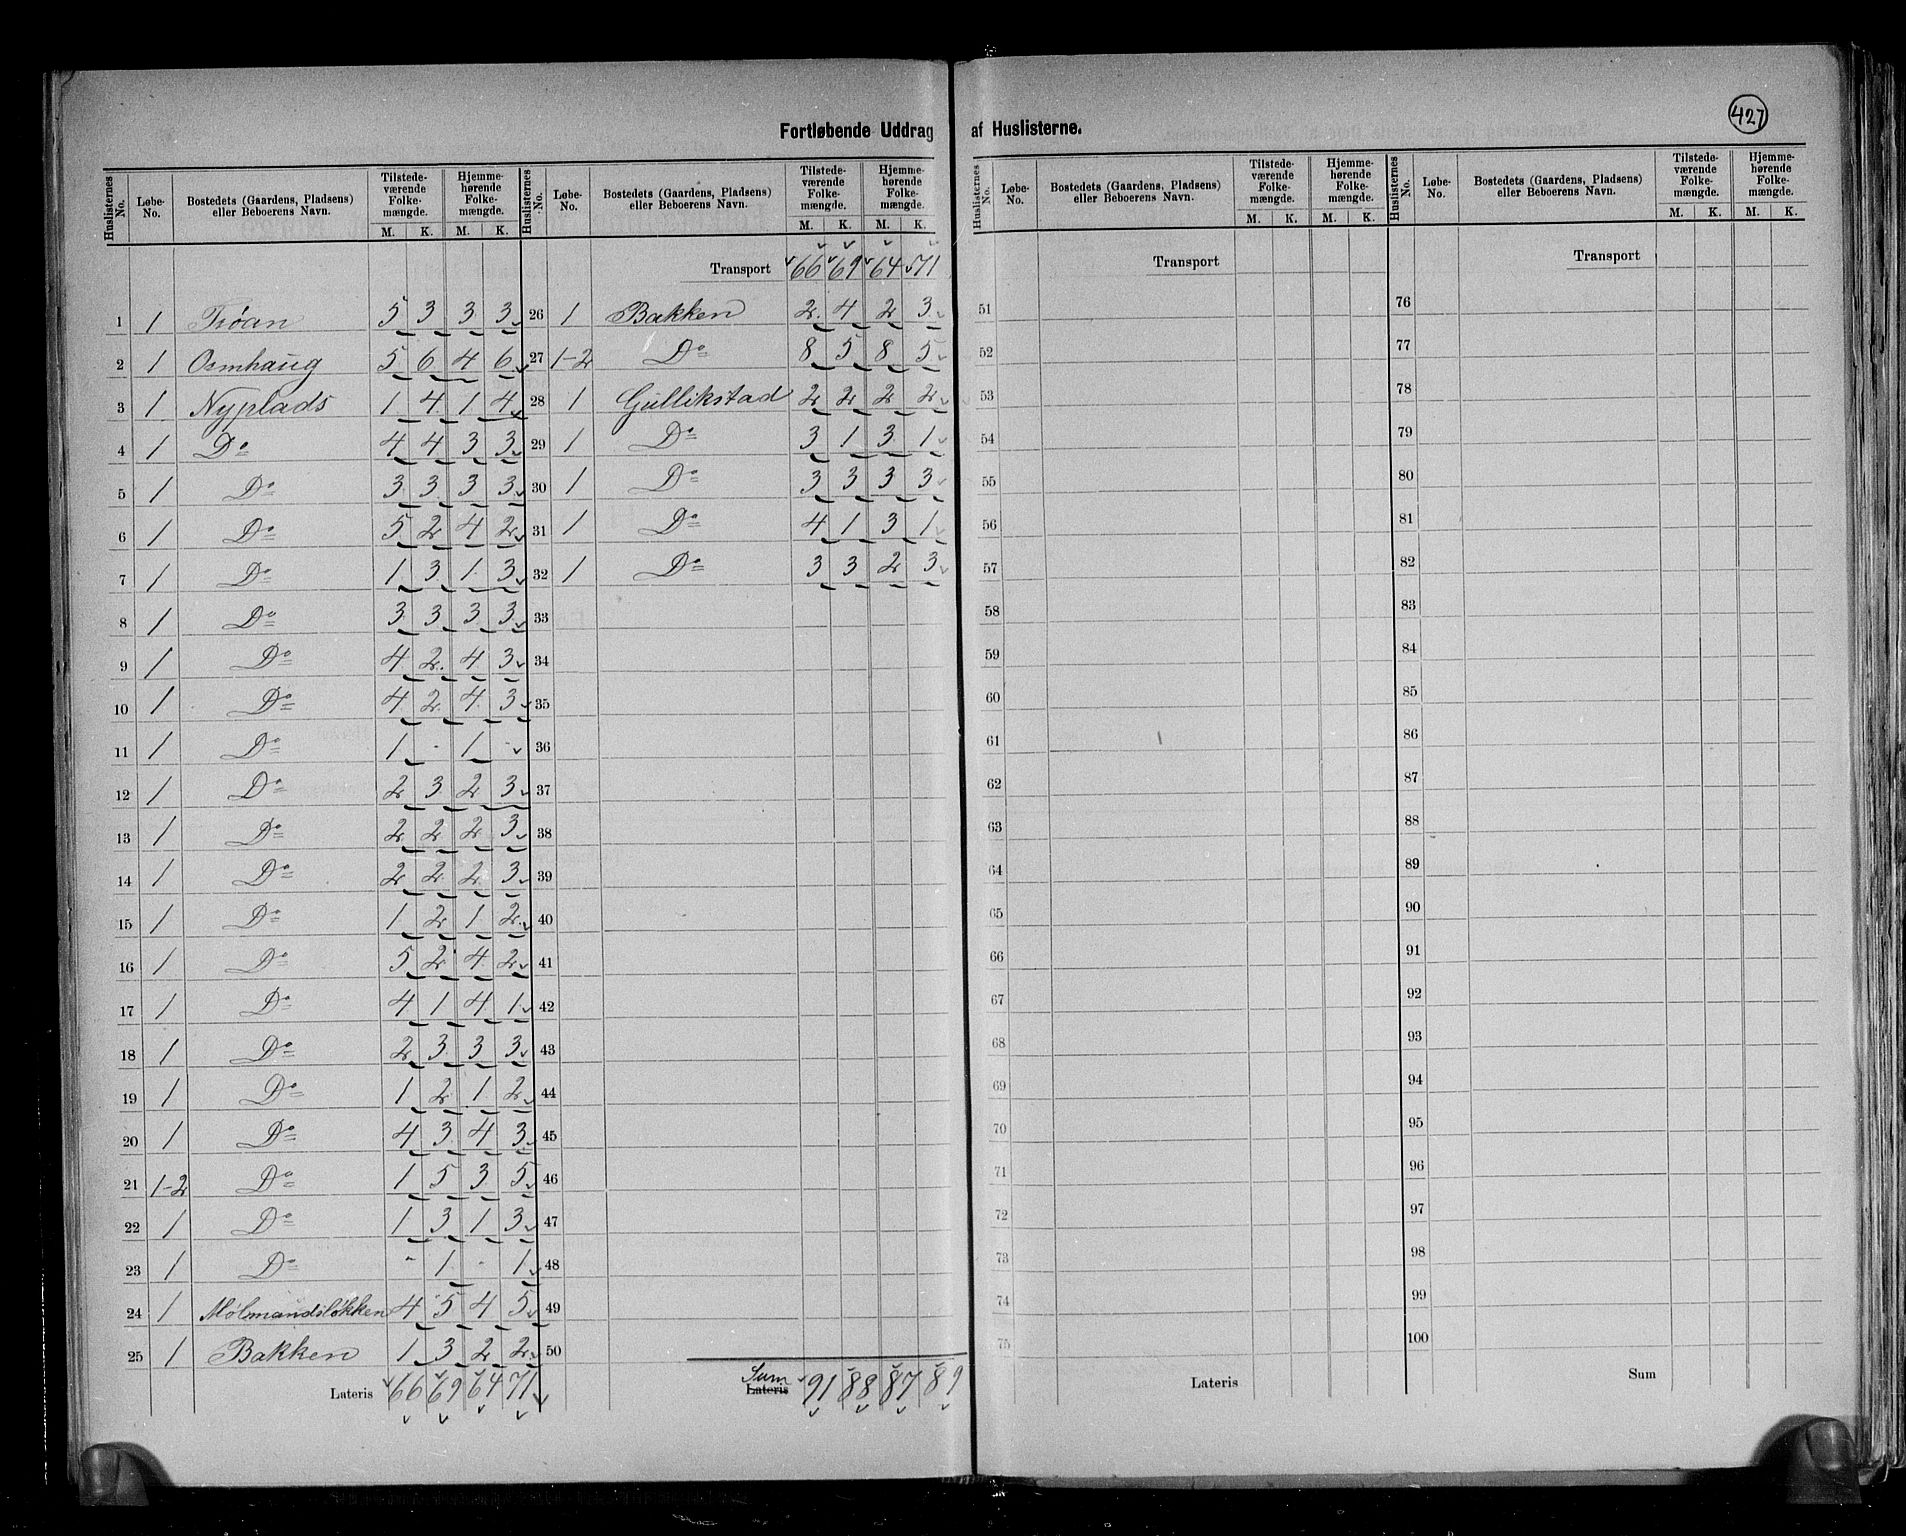 427
Fortløbende Uddrag af Huslisterne.
Huslisternes No. | Løbe-No. | Bostedets (Gaardens, Pladsens) eller Beboerens Navn. | Tilstede-værende Folke-mængde. M. K. | Hjemme-hørende Folke-mængde. M. K.
1 1 Trøan 5 3 3 3
2 1 Osmhaug 5 6 4 6
3 1 Nyplads 1 4 1 4
4 1 Do 4 4 3 3
5 1 Do 3 3 3 3
6 1 Do 5 2 4 2
7 1 Do 1 3 1 3
8 1 Do 3 3 3 3
9 1 Do 4 2 4 3
10 1 Do 4 2 4 3
11 1 Do 1 - 1 -
12 1 Do 2 3 2 3
13 1 Do 2 2 2 3
14 1 Do 2 2 2 3
15 1 Do 1 2 1 2
16 1 Do 5 2 4 2
17 1 Do 4 1 4 1
18 1 Do 2 3 3 3
19 1 Do 1 2 1 2
20 1 Do 4 3 4 3
21 1-2 Do 1 5 3 5
22 1 Do 1 3 1 3
23 1 Do - 1 - 1
24 1 Molmandsløkken 4 5 4 5
25 1 Bakken 1 3 2 2
Lateris 66 69 64 71
Huslisternes No. | Løbe-No. | Bostedets (Gaardens, Pladsens) eller Beboerens Navn. | Tilstede-værende Folke-mængde. M. K. | Hjemme-hørende Folke-mængde. M. K.
Transport 66 69 64 71
26 1 Bakken 2 4 2 3
27 1-2 Do 8 5 8 5
28 1 Gullikstad 2 2 2 2
29 1 Do 3 1 3 1
30 1 Do 3 3 3 3
31 1 Do 4 1 3 1
32 1 Do 3 3 2 3
33
34
35
36
37
38
39
40
41
42
43
44
45
46
47
48
49
50
Sum
Lateris 91 88 87 89
Huslisternes No. | Løbe-No. | Bostedets (Gaardens, Pladsens) eller Beboerens Navn. | Tilstede-værende Folke-mængde. M. K. | Hjemme-hørende Folke-mængde. M. K.
Transport
51
52
53
54
55
56
57
58
59
60
61
62
63
64
65
66
67
68
69
70
71
72
73
74
75
Lateris
Huslisternes No. | Løbe-No. | Bostedets (Gaardens, Pladsens) eller Beboerens Navn. | Tilstede-værende Folke-mængde. M. K. | Hjemme-hørende Folke-mængde. M. K.
Transport
76
77
78
79
80
81
82
83
84
85
86
87
88
89
90
91
92
93
94
95
96
97
98
99
100
Sum